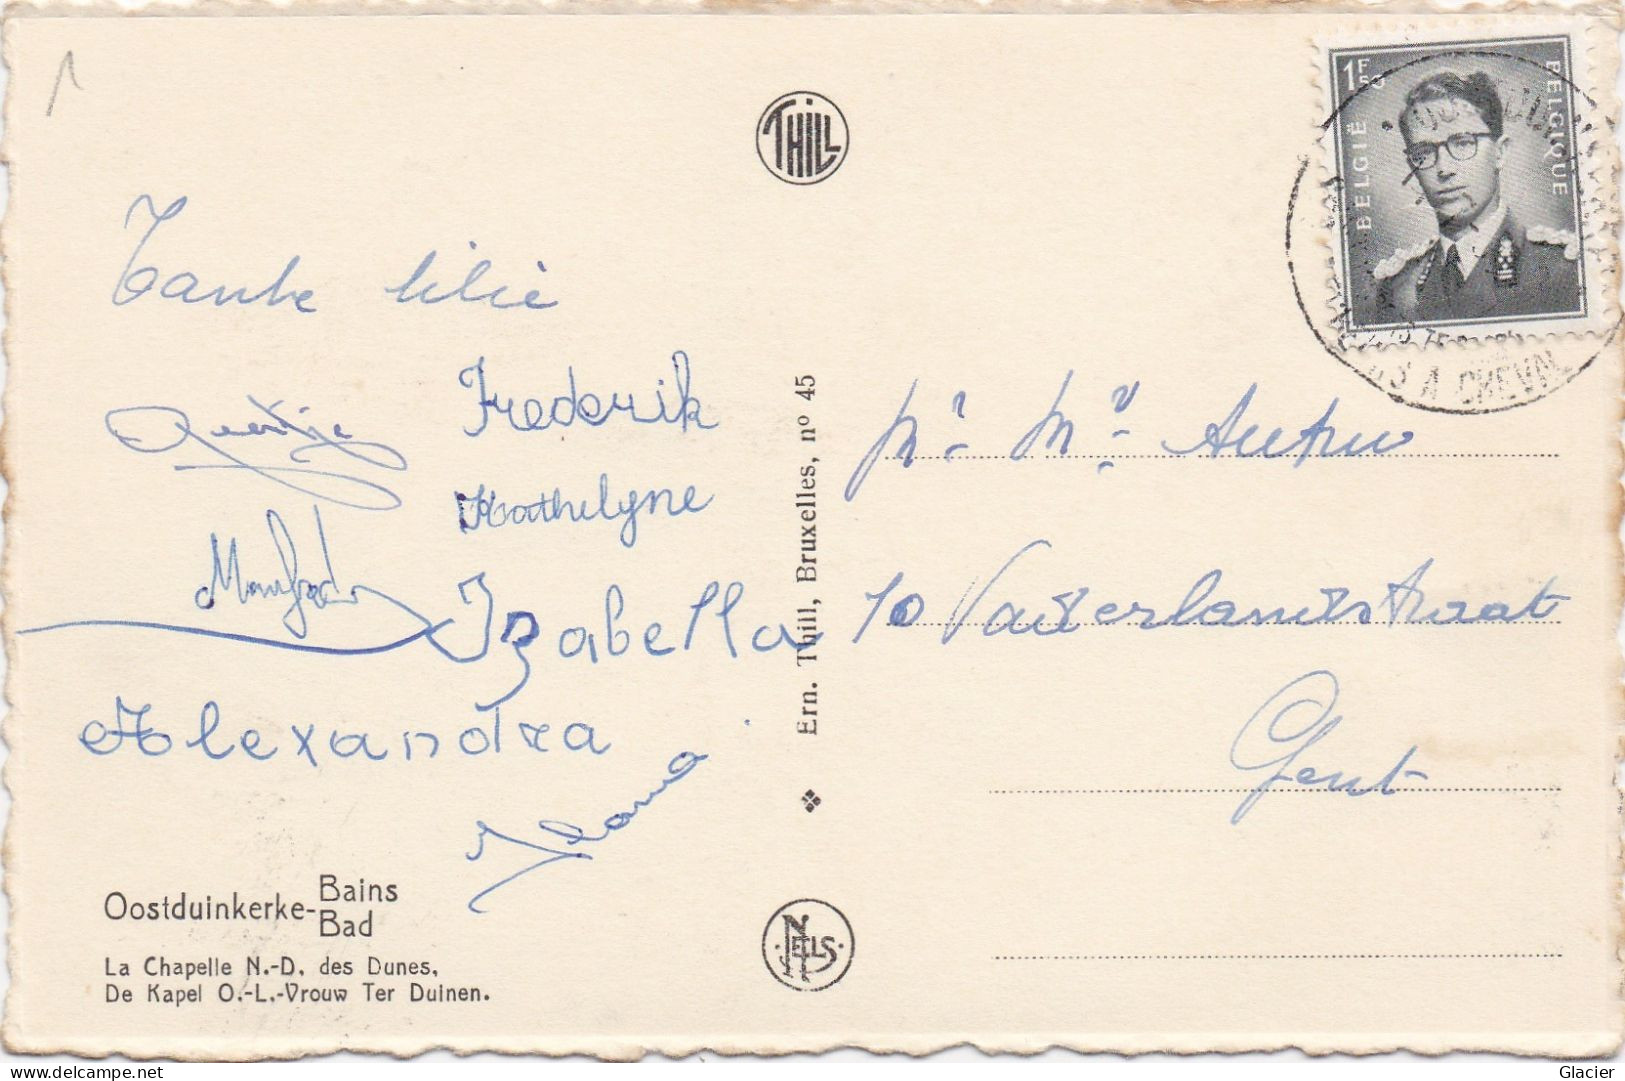 THILL
1F50
BELGIË
BELGIQUE
A CHEVAL
Tante Lilie
Frederik
Kathelyne
Manfred
Izabella
Alexandra
Ern. Thill, Bruxelles, nº 45
Mr. Mr
10 Vaderlandstraat
Gent
Oostduinkerke-Bains
Bad
La Chapelle N.-D. des Dunes.
De Kapel O.-L.-Vrouw Ter Duinen.
NELS
Glacier
delcampe.net